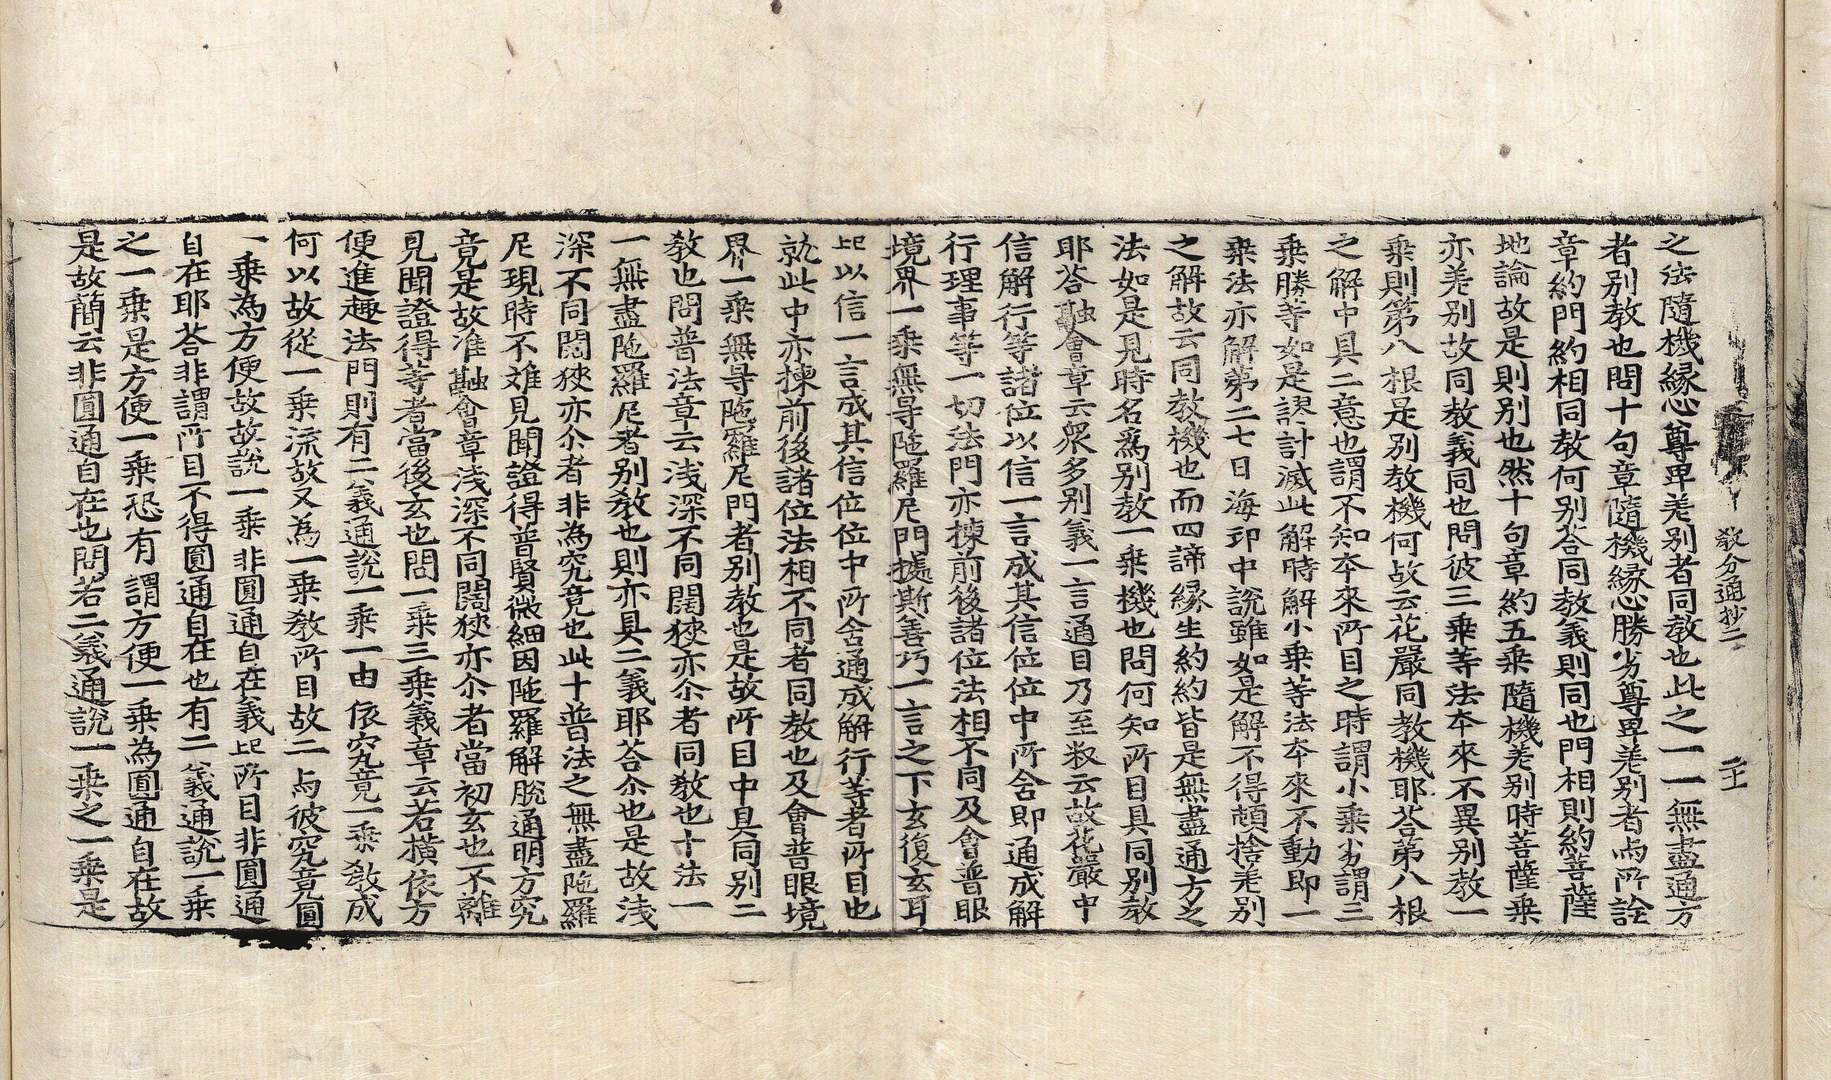 教分通抄二 二十
之法隨機緣心尊卑差别者同教也此之一一無盡通方
者别教也問十句章隨機緣心勝劣尊卑差别者与所詮
章約門約相同教何别荅同教義則同也門相則約菩薩
地論故是則别也然十句章約五乘隨機差别時菩薩乘
亦差别故同教義同也問彼三乘等法夲來不異别教一
乘則第八根是别教機何故云花嚴同教機耶荅第八根
之解中具二意也謂不知夲來所目之時謂小乘劣謂三
乘勝等如是謬計滅此解時解小乘等法夲來不動即一
乘法亦解第二七日海印中說雖如是解不得頓捨差别
之解故云同教機也而四諦緣生約約皆是無盡通方之
法如是見時名爲别教一乘機也問何知所目具同别教
耶荅融會章云衆多别義一言通目乃至叙云故花嚴中
信解行等諸位以信一言成其信位位中所含即通成解
行理事等一切法門亦揀前後諸位法相不同及會普眼
境界一乘無㝵陁羅尼門據斯善巧一言之下玄復玄耳
記以信一言成其信位位中所含通成解行等者所目也
就此中亦揀前後諸位法相不同者同教也及會普眼境
界一乘無㝵陁羅尼門者别教也是故所目中具同别二
教也問普法章云浅深不同闊狹亦尒者同教也十法一
一無盡陁羅尼者别教也則亦具二義耶荅尒也是故浅
深不同闊狹亦尒者非為究竟也此十普法之無盡陁羅
尼現時不難見聞證得普賢微細因陁羅解脫通明方究
竟是故准融會章浅深不同闊狹亦尒者當初玄也不離
見聞證得等者當後玄也問一乘三乘義章云若橫依方
便進趣法門則有二義通說一乘一由依究竟一乘教成
何以故從一乘流故又為一乘教所目故二与彼究竟圓
一乘為方便故故說一乘非圓通自在義記所目非圓通
自在耶荅非謂所目不得圓通自在也有二義通說一乘
之一乘是方便一乘恐有謂方便一乘為圓通自在故
是故簡云非圓通自在也問若二義通說一乘之一乘是